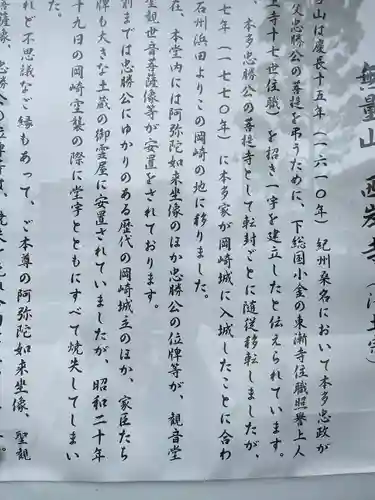 無量山 西岸寺 (浄土宗)
山は慶長十五年(一六一〇年)紀州桑名において本多忠政が
父忠勝公の菩提を弔うために、下総国小金の東漸寺住職照誉上人
寺十七世住職)を招き一宇を建立したと伝えられています。
、本多忠勝公の菩提寺として転封ごとに随従移転しましたが、
七年(一七七〇年)に本多家が岡崎城に入城したことに合わ
石州浜田よりこの岡崎の地に移りました。
在、本堂内には阿弥陀如来坐像のほか忠勝公の位牌等が、観音堂
聖観世音菩薩像等が安置をされております。
前までは忠勝公にゆかりのある歴代の岡崎城主のほか、家臣たち
牌も大きな土蔵の御霊屋に安置されていましたが、昭和二十年
十九日の岡崎空襲の際に堂宇とともにすべて焼失してしまい
た。
れど不思議なご縁もあって、ご本尊の阿弥陀如来坐像、聖観
菩薩像、忠勝公の位牌等は、焼失